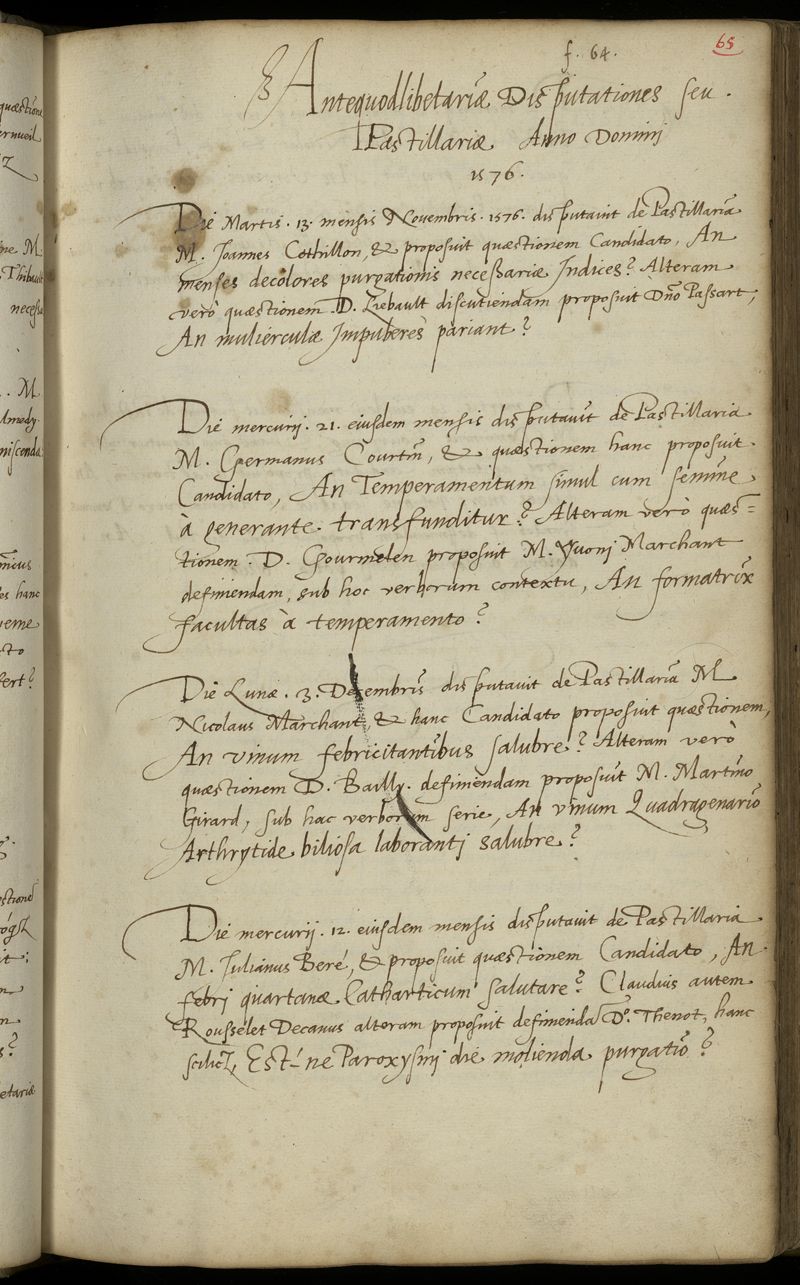 f. 64.
65
Antequodlibetariæ Disputationes seu
Pastillariæ Anno Domini
1576.
Die Martis. 13. mensis Novembris. 1576. disputavit de Pastillaria
M. Joannes Cothillon, & proposuit quæstionem Candidato, An
menses decolores purgationis necessariæ Indices? Alteram
verò quæstionem D. Liebault discutiendam proposuit Dño Passart,
An mulierculæ Impuberes pariant?
Die mercurij. 21. eiusdem mensis disputavit de Pastillaria
M. Germanus Courtin, & quæstionem hanc proposuit
Candidato, An Temperamentum simul cum semine
à generante transfunditur? Alteram verò quæs=
tionem D. Gourmelen proposuit M. Yvoni Marchant
definiendam, sub hoc verborum contextu, An formatrix
facultas à temperamento?
Die Lunæ. 3. Decembris disputavit de Pastillaria M.
Nicolaus Marchant & hanc Candidato proposuit quæstionem,
An vinum febricitantibus salubre? Alteram verò
quæstionem D. Bailly. definiendam proposuit M. Martino
Girard, sub hac verborum serie, An vinum Quadragenario
Arthrytide biliosa laboranti salubre?
Die mercurij. 12. eiusdem mensis disputavit de Pastillaria
M. Julianus Beré, & proposuit quæstionem Candidato, An
febri quartanæ Catharticum salutare? Claudius autem
Rousselet Decanus alteram proposuit definiendã Dº. Thenot, hanc
Est-ne Paroxysmi die molienda purgatio?